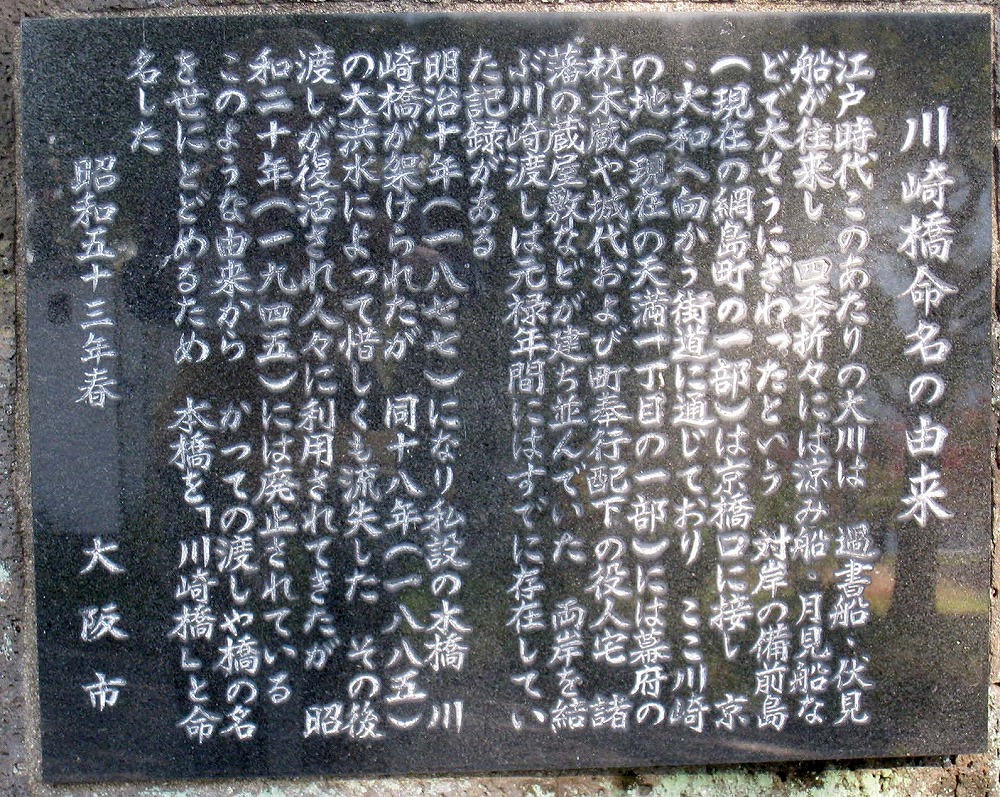 川崎橋命名の由来
江戸時代このあたりの大川は　過書船、伏見
船が往来し　四季折々には涼み船、月見船な
どで大そうにぎわったという　対岸の備前島
（現在の網島町の一部）は京橋口に接し　京
、大和へ向かう街道に通じており　ここ川崎
の地（現在の天満一丁目の一部）には幕府の
材木蔵や城代および町奉行配下の役人宅　諸
藩の蔵屋敷などが建ち並んでいた　両岸を結
ぶ川崎渡しは元禄年間にはすでに存在してい
た記録がある
明治十年（一八七七）になり私設の木橋　川
崎橋が架けられたが　同十八年（一八八五）
の大洪水によって惜しくも流失した　その後
渡しが復活され人々に利用されてきたが　昭
和二十年（一九四五）には廃止されている
このような由来から　かつての渡しや橋の名
を世にとどめるため　本橋を「川崎橋」と命
名した
昭和五十三年春　大阪市